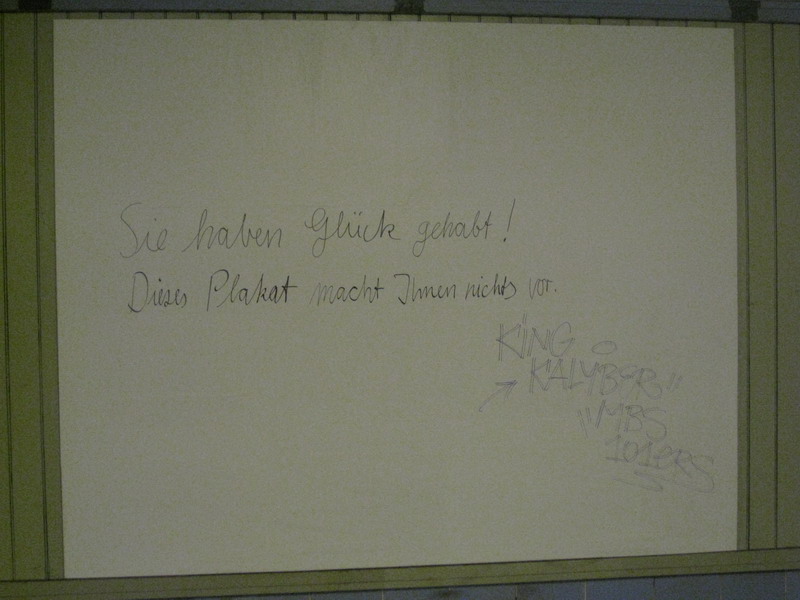 Sie haben Glück gehabt!
Dieses Plakat macht Ihnen nichts vor.
KING
KALYBER"
"MBS
101ERS